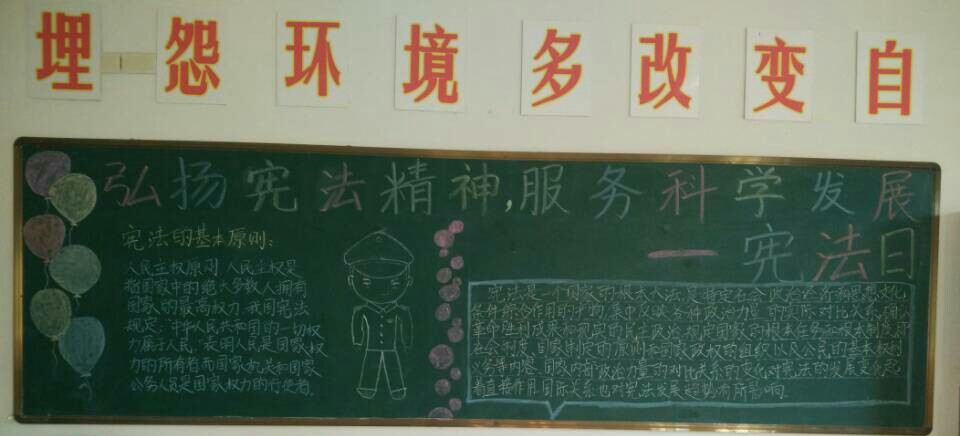 埋怨环境多改变自
弘扬宪法精神,服务科学发展
一宪法日
宪法的基本原则:
人民主权原则 人民主权是
指国家中的绝大多数人拥有
国家的最高权力.我国宪法
规定:"中华人民共和国的一切权
力属于人民"表明人民是国家权
力的所有者而国家机关和国家
公务人员是国家权力的行使者.
宪法是一个国家的根本大法 是特定社会政治经济和思想文化
条件综合作用的产物 集中反映各种政治力量的实际对比关系 确认
革命胜利成果和现实的民主政治 规定国家的根本任务和根本制度 即
社会制度、国家制度的原则和国家政权的组织以及公民的基本权利
义务等内容. 国家内部政治力量的对比关系的变化对宪法的发展变化起
着直接作用 国际关系也对宪法发展趋势有所影响.